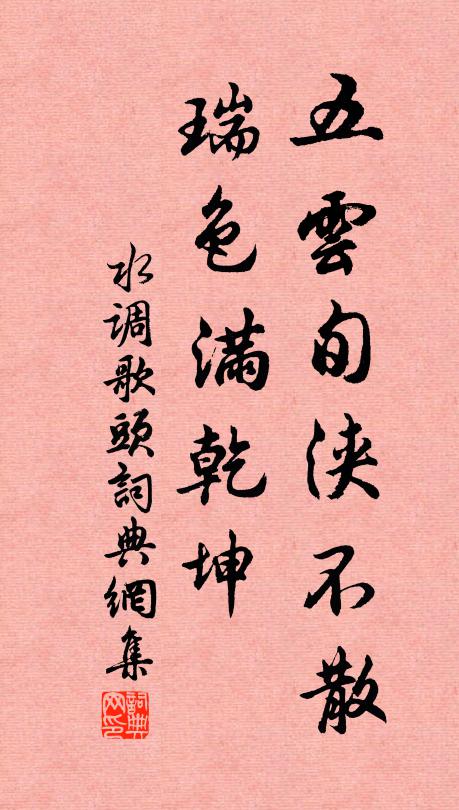 五雲旬浹不散
瑞色滿乾坤
水调歌頭詞典網集
詞典网印